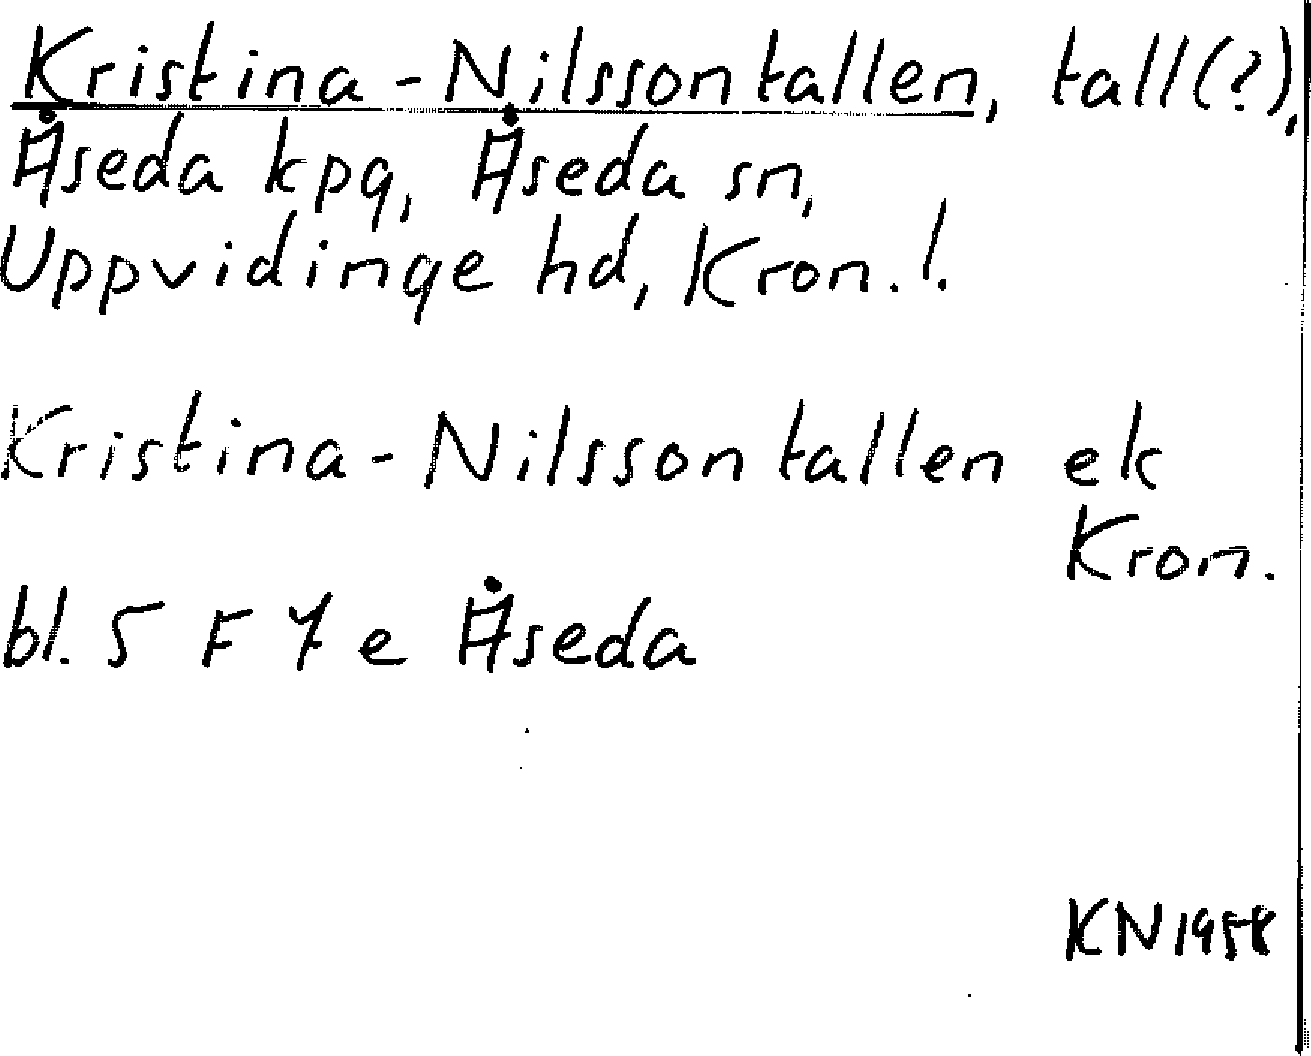 Kristina-Nilssontallen, tall(?),
Åseda kpg, Åseda sn,
Uppvidinge hd, Kron. l.
Kristina-Nilssontallen ek
Kron.
bl. 5 F 7 e Åseda
KN 1958